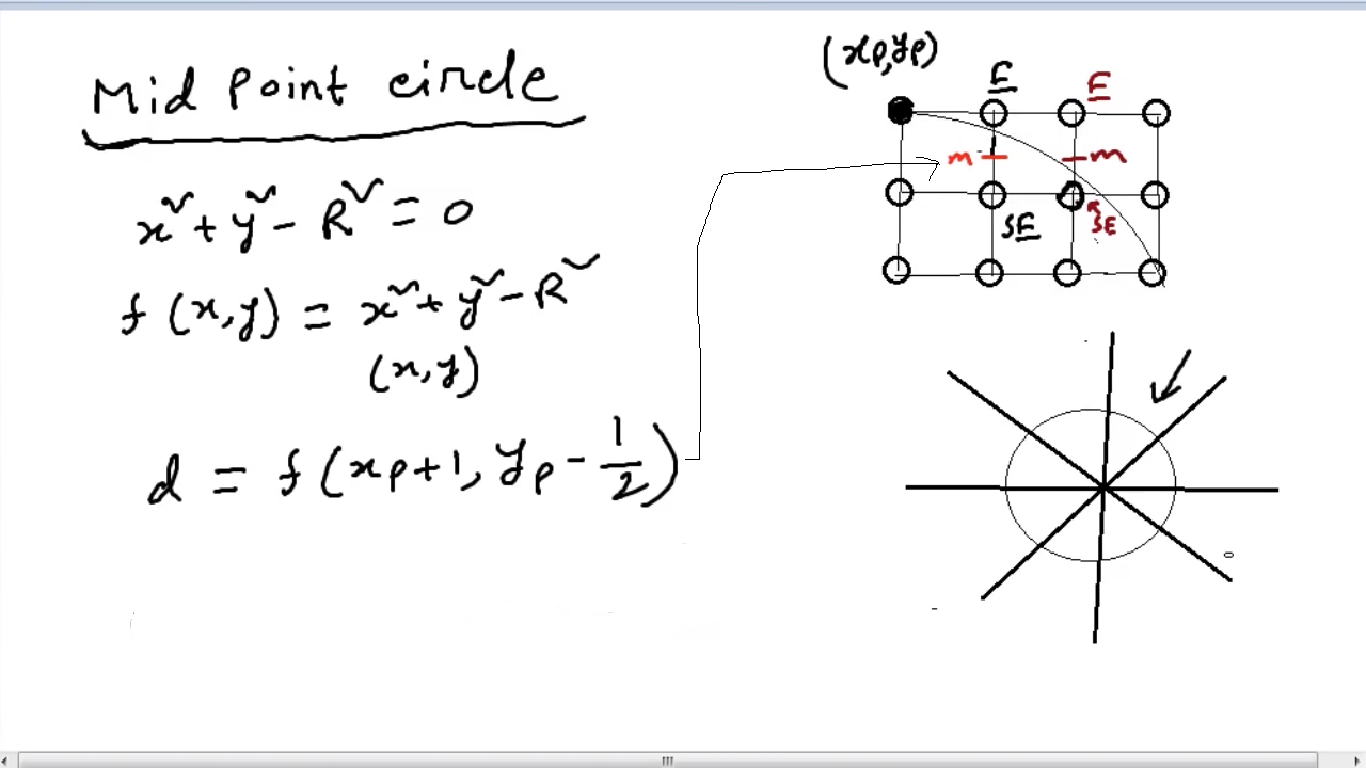 Mid Point circle
x² + y² - R² = 0
f (x,y) = x² + y² - R²
(x,y)
d = f(xp+1, yp - 1/2)
(xp,yp)
E E
m m
SE SE